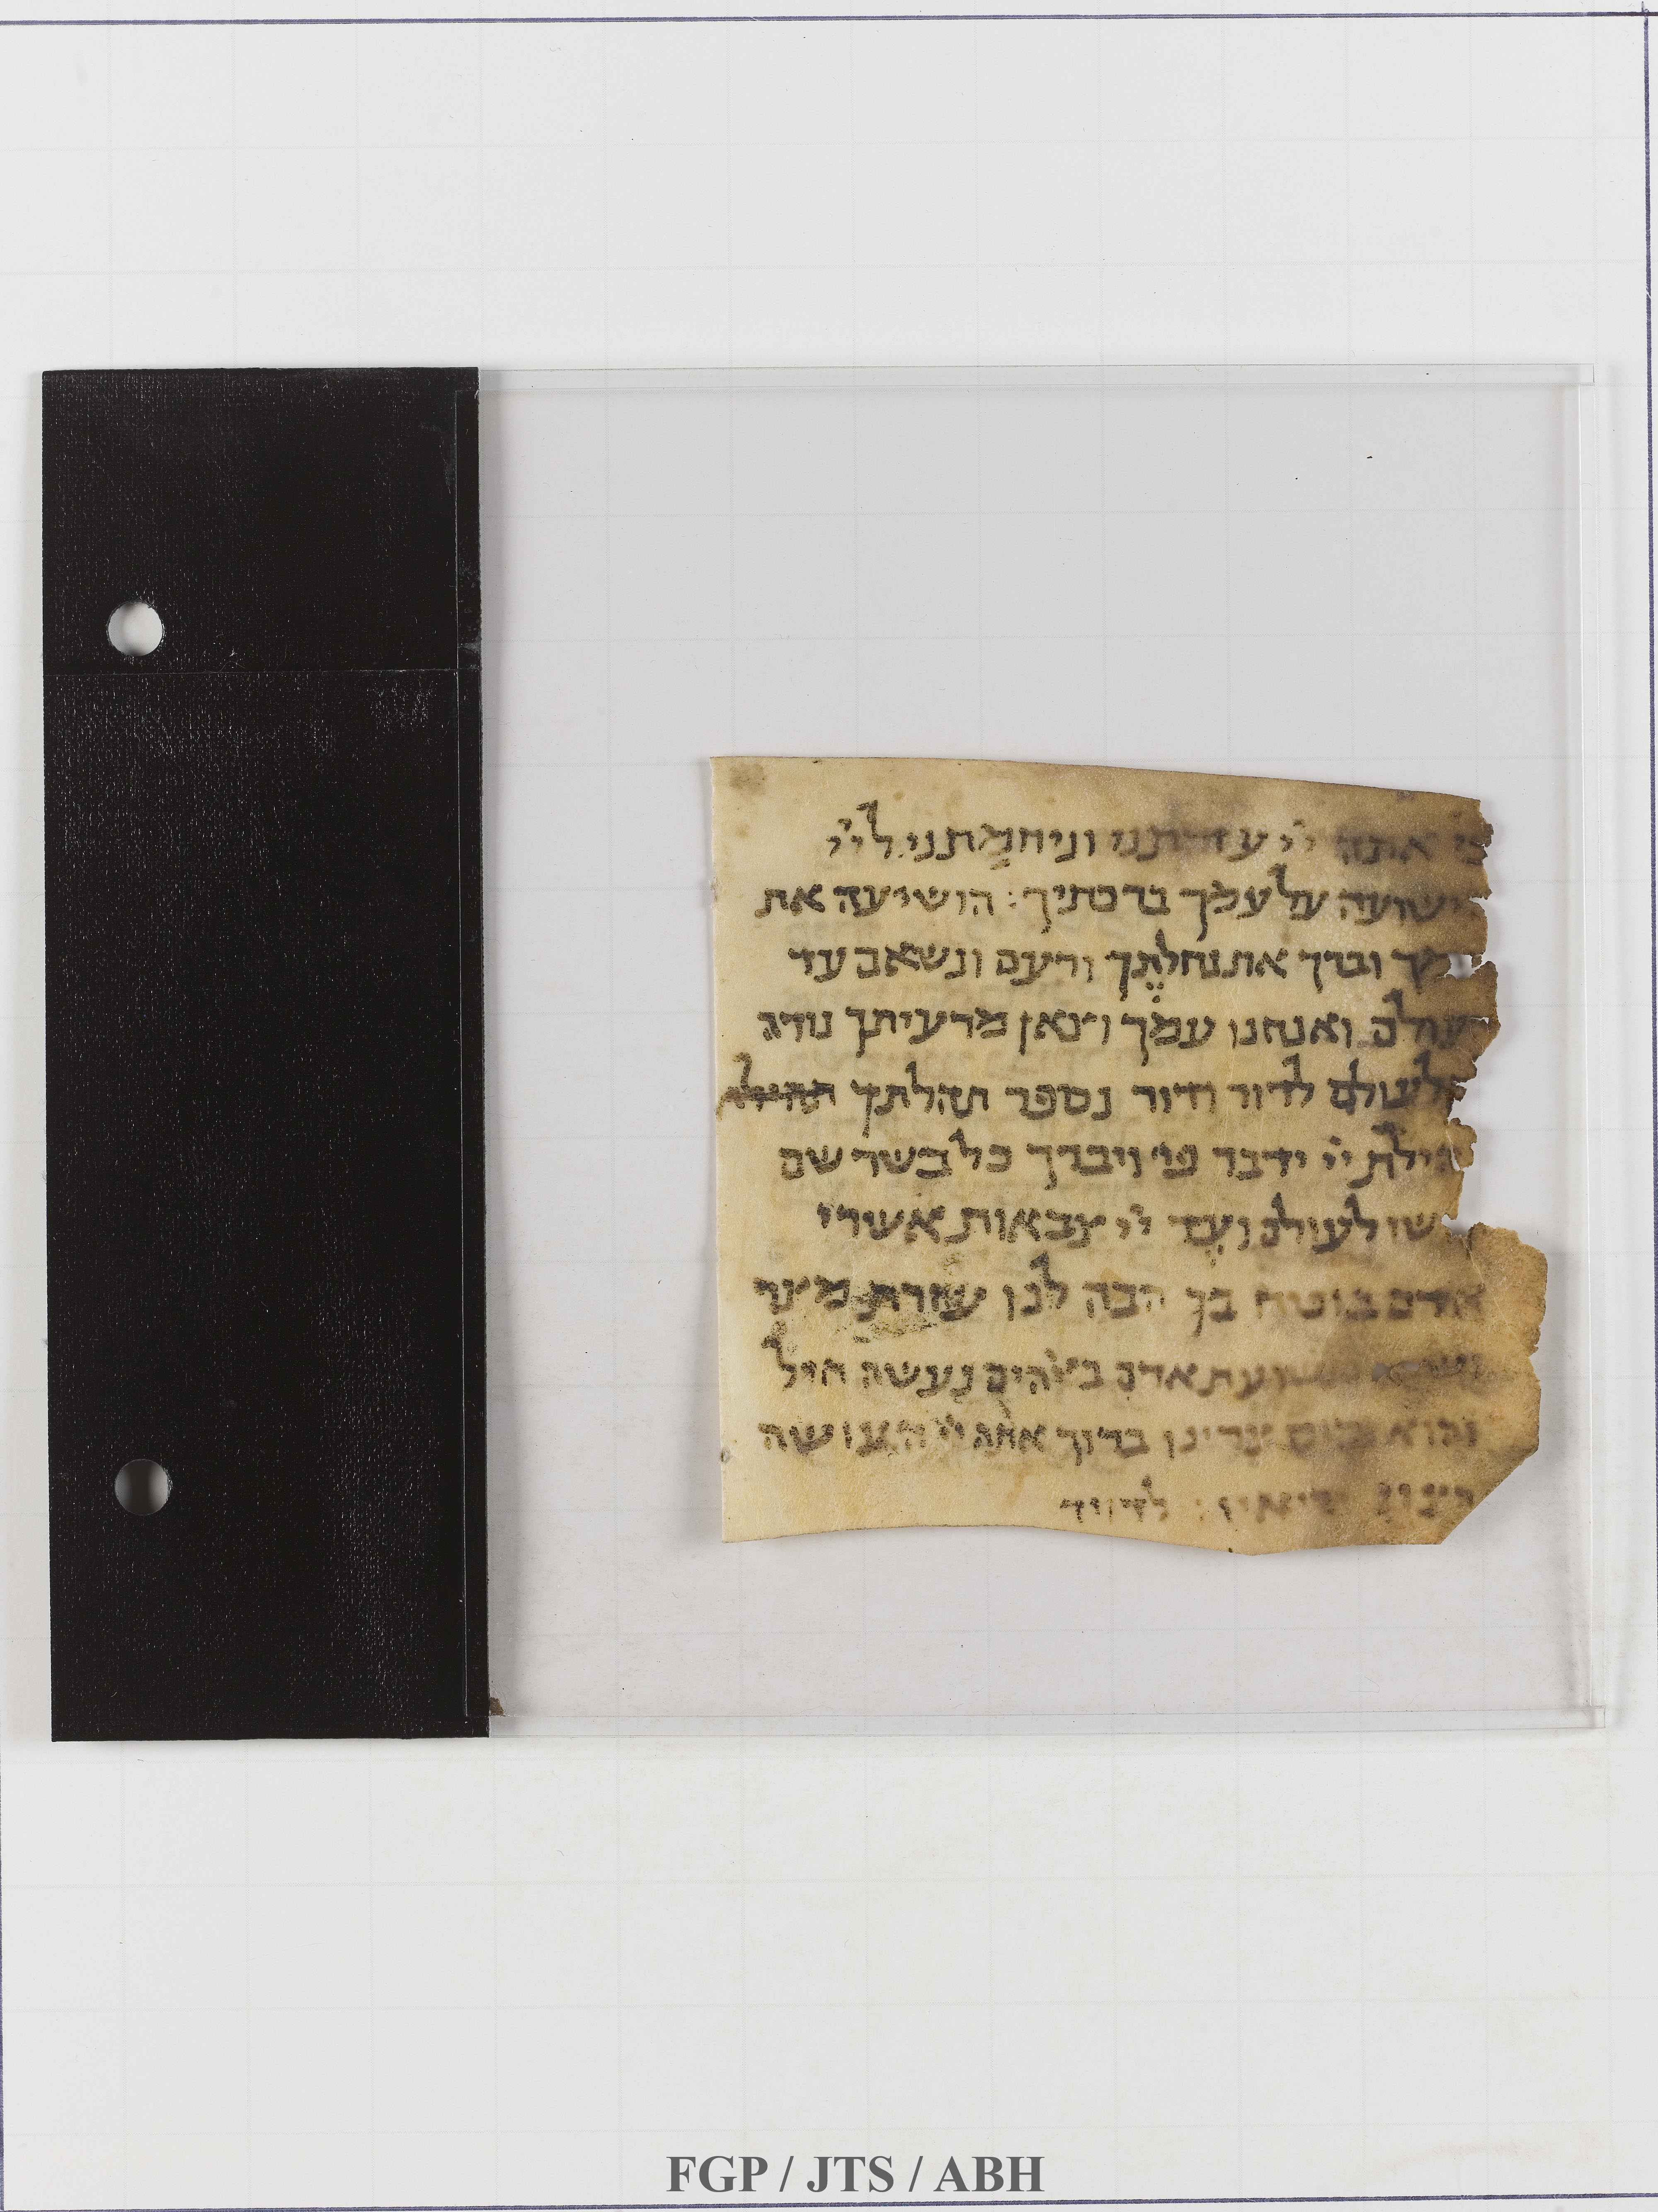 כי אתה יי עזרתני וניחמתני ליי
ישועה על עמך ברכתיך : הושיעה את
וברך את נחלתך ורעם ונשאם עד
עולם ואנחנו עמך וצאן מרעיתך נודה
לעולם לדור ודור נספר תהלתך
תהילת יי ידבר פי ויברך כל בשר שם
לעולם ועד יי צבאות אשרי
אדם בוטח בך הבה לנו עזרת מצר
ושוא תשועת אדם באלהים נעשה חיל
והוא יבוס צרינו ברוך אתה יי העושה
לדויד
FGP / JTS / ABH